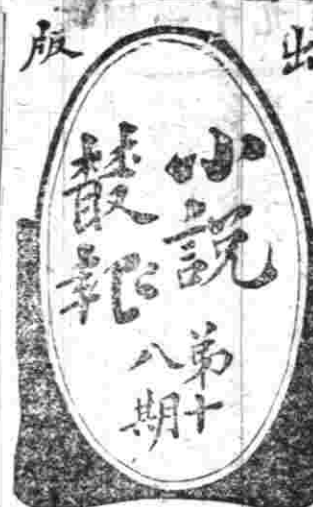 出版
小說
叢報
第十
八期